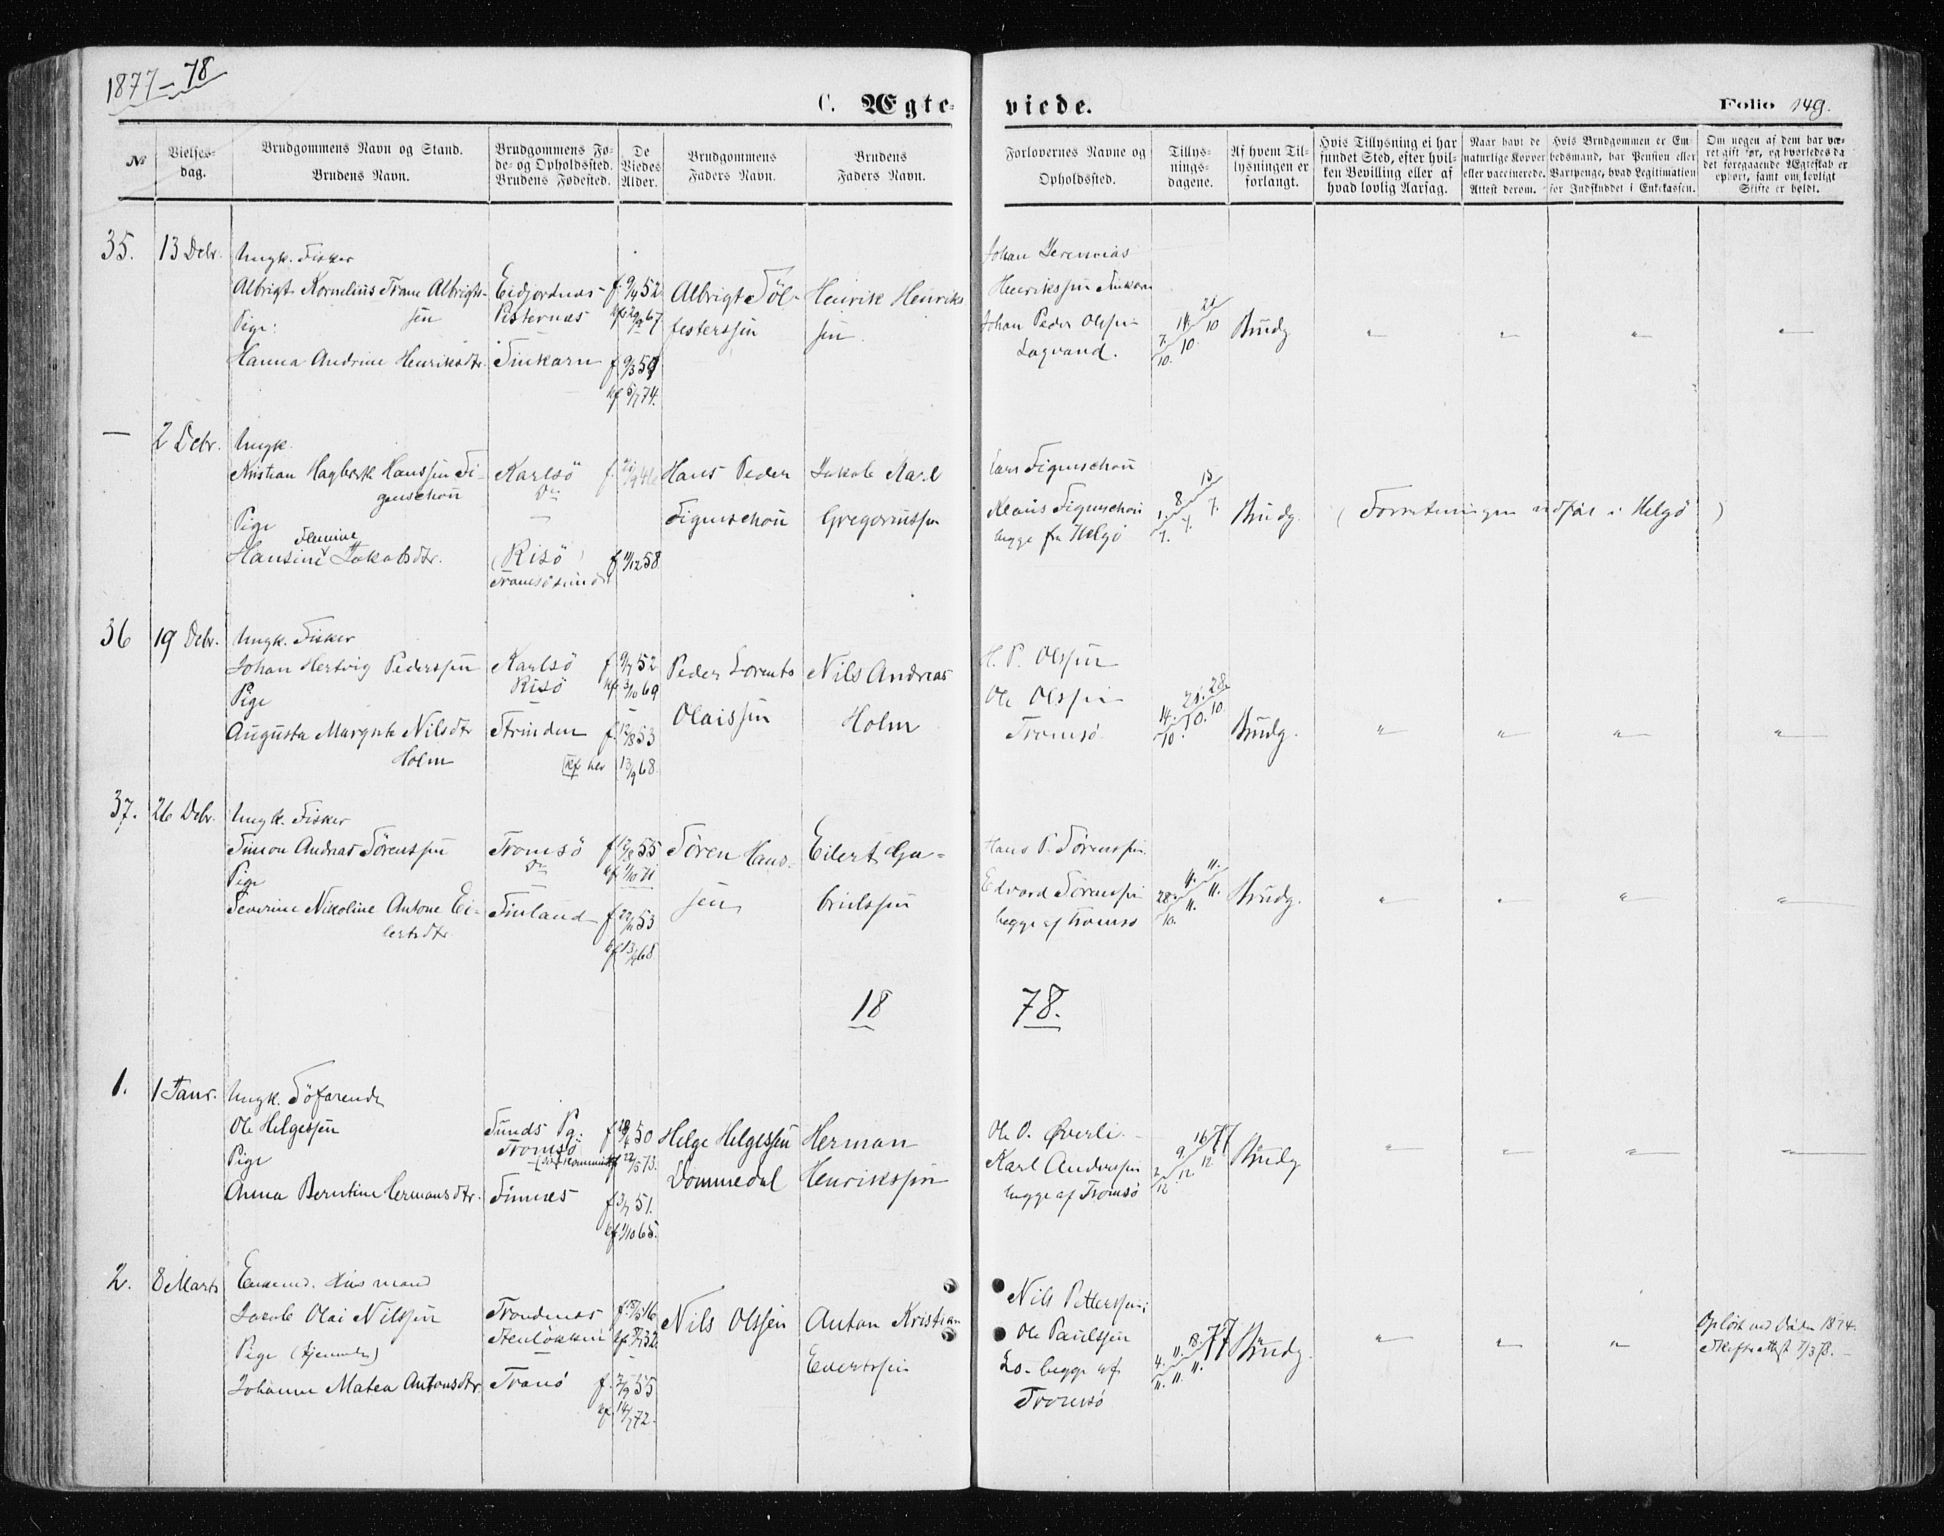 1877-78
C. Ægte-
viede.
Folio 149.
№
Vielses-
dag.
Brudgommens Navn og Stand.
Brudens Navn.
Brudgommens Fø-
de- og Opholdssted.
Brudens Fødested.
De
Viedes
Alder.
Brudgommens
Faders Navn.
Brudens
Faders Navn.
Forlovernes Navne og
Opholdssted.
Tillys-
nings-
dagene.
Af hvem Til-
lysningen er
forlangt.
Hvis Tillysning ei har
fundet Sted, efter hvil-
ken Bevilling eller af
hvad lovlig Aarsag.
Naar havt de
naturlige Kopper
eller vaccinerede.
Attest derom.
Hvis Brudgommen er Em-
bedsmand, har Pension eller
Vartpenge, hvad Legitimation
for Indskuddet i Enkekassen.
Om nogen af dem har væ-
ret gift før, og hvorledes da
det foregaaende Ægteskab er
opløst, samt om lovligt
Skifte er holdt.
35.
13 Debr.
Ungk. Fisker
Albrigt Kornelius Frane Albrigts-
sen
Pige:
Hanna Andrine Henriksdtr.
Eidjordnes
Finkarn
f 9/4 52
f 9/3 59
kf 5/7 74.
Albrigt Söl-
festerssen
Henrik Henriks
sen.
Johan Jeremias
Henrikssen Finkarn
Johan Peder Olssen
Lagvand.
7/10. 14/10. 21/10
Brudg
" " " "
—
2 Debr.
Ungk.
Kristian Hagbarth Hanssen Fi-
genschou
Pige
Flemine
Hansine Jakobsdtr.
Karlsö
Do
—
(Risö)
Tromsösund
f 11/12 58.
Hans Peder
Figenschou
Jakob Karl
Gregoriussen
Lars Figenschou
Klaus Figenschou
begge fra Helgö
Brudg.
(Forretningen udfört i Helgö)
36
19 Debr.
Ungk. Fisker
Johan Hertvig Pederssen
Pige
Augusta Margrete Nilsdtr
Holm
Karlsö
Risö
Strinden
kf her
f 9/7 52
kf 3/10 69
f 12/8 53
13/9 68.
Peder Lorents
Olaissen
Nils Andreas
Holm
H. P. Olssen
Ole Olssen
Tromsö.
14/10. 21/10. 28/10.
Brudg.
" " " "
37.
26 Debr.
Ungk. Fisker
Simon Andreas Sörenssen
Pige
Severine Nikoline Antone Ei-
lertsdtr
Tromsö
Do
—
Finland
f 12/8 55
kf 1/10 71
f 22/11 53
Sören Hans-
sen
Eilert Ga-
brielssen
Hans P. Sörenssen
Edvard Sörenssen
begge af Tromsö
28/10. 4/11. 11/11.
Brudg.
" " " "
18
78.
1.
1 Janr.
Ungk. Söfarende
Ole Helgessen
Pige
Anna Berntine Hermansdtr.
Sunds Pg.
Tromsö
Finnes
f 28/4 50
22/5 73.
f 3/7 51.
kf 1/10 65.
Helge Helgessen
Dommedal
Herman
Henrikssen
Ole O. Øverli.
Karl Anderssen
begge af Tromsö
2/12. 9/12 16/12 77
Brudg
" " " "
2.
8 Marts
Enkemd. Husmand
Jacob Olai Nilssen
Pige (tjenende)
Johanne Matea Antonsdtr
Trondenes
Tranö
f. 2/9 55
kf. 14/7 72.
Nils Olssen
Anton Kristian
Evertssen
Nils Petterssen
Ole Paulssen
Lo- begge af
Tromsö
4/11. 11/11. 18/11. 77
Brudg.
" " "
Oplöst ved Döden 1874.
Skifteattest 7/3 78.